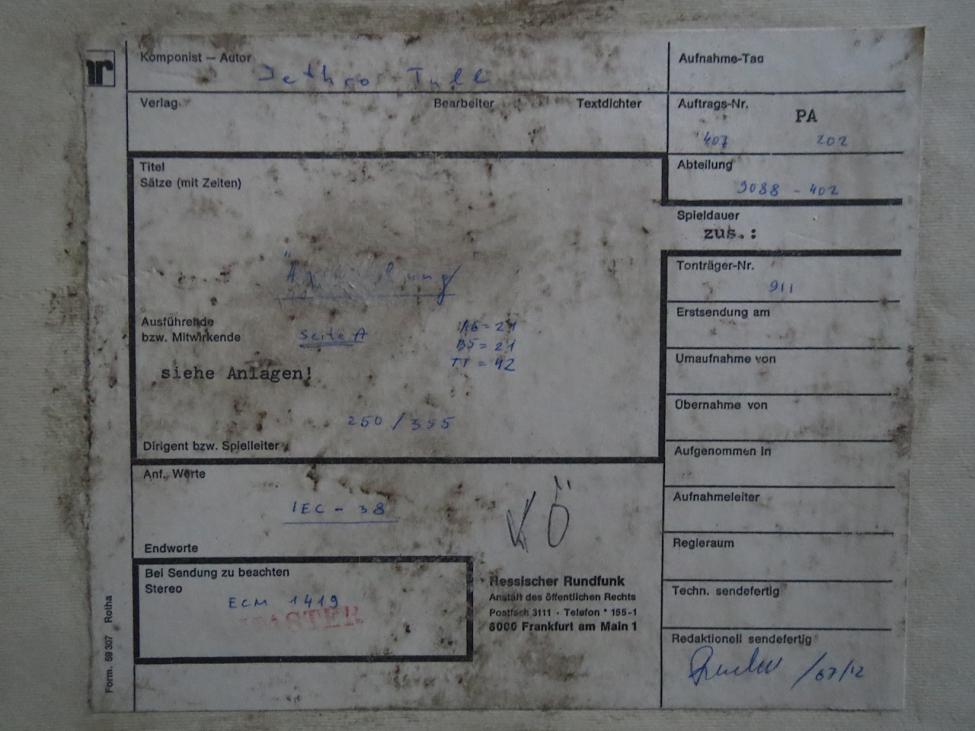 hr
Komponist — Autor
Jethro Tull
Aufnahme-Tag
Verlag
Bearbeiter
Textdichter
Auftrags-Nr.
PA
407 202
Titel
Sätze (mit Zeiten)
Abteilung
3088 - 402
Spieldauer
zus.:
Tonträger-Nr.
911
Ausführende
bzw. Mitwirkende
Seite A
siehe Anlagen!
= 21
= 21
TT = 42
250 / 355
Dirigent bzw. Spielleiter
Erstsendung am
Umaufnahme von
Übernahme von
Aufgenommen in
Aufnahmeleiter
Regieraum
Techn. sendefertig
Redaktionell sendefertig
Anf. Worte
IEC - 38
KÖ
Endworte
Bei Sendung zu beachten
Stereo
ECM 1419
MASTER
Hessischer Rundfunk
Anstalt des öffentlichen Rechts
Postfach 3111 · Telefon * 155-1
6000 Frankfurt am Main 1
Form. 59 307 Rotha